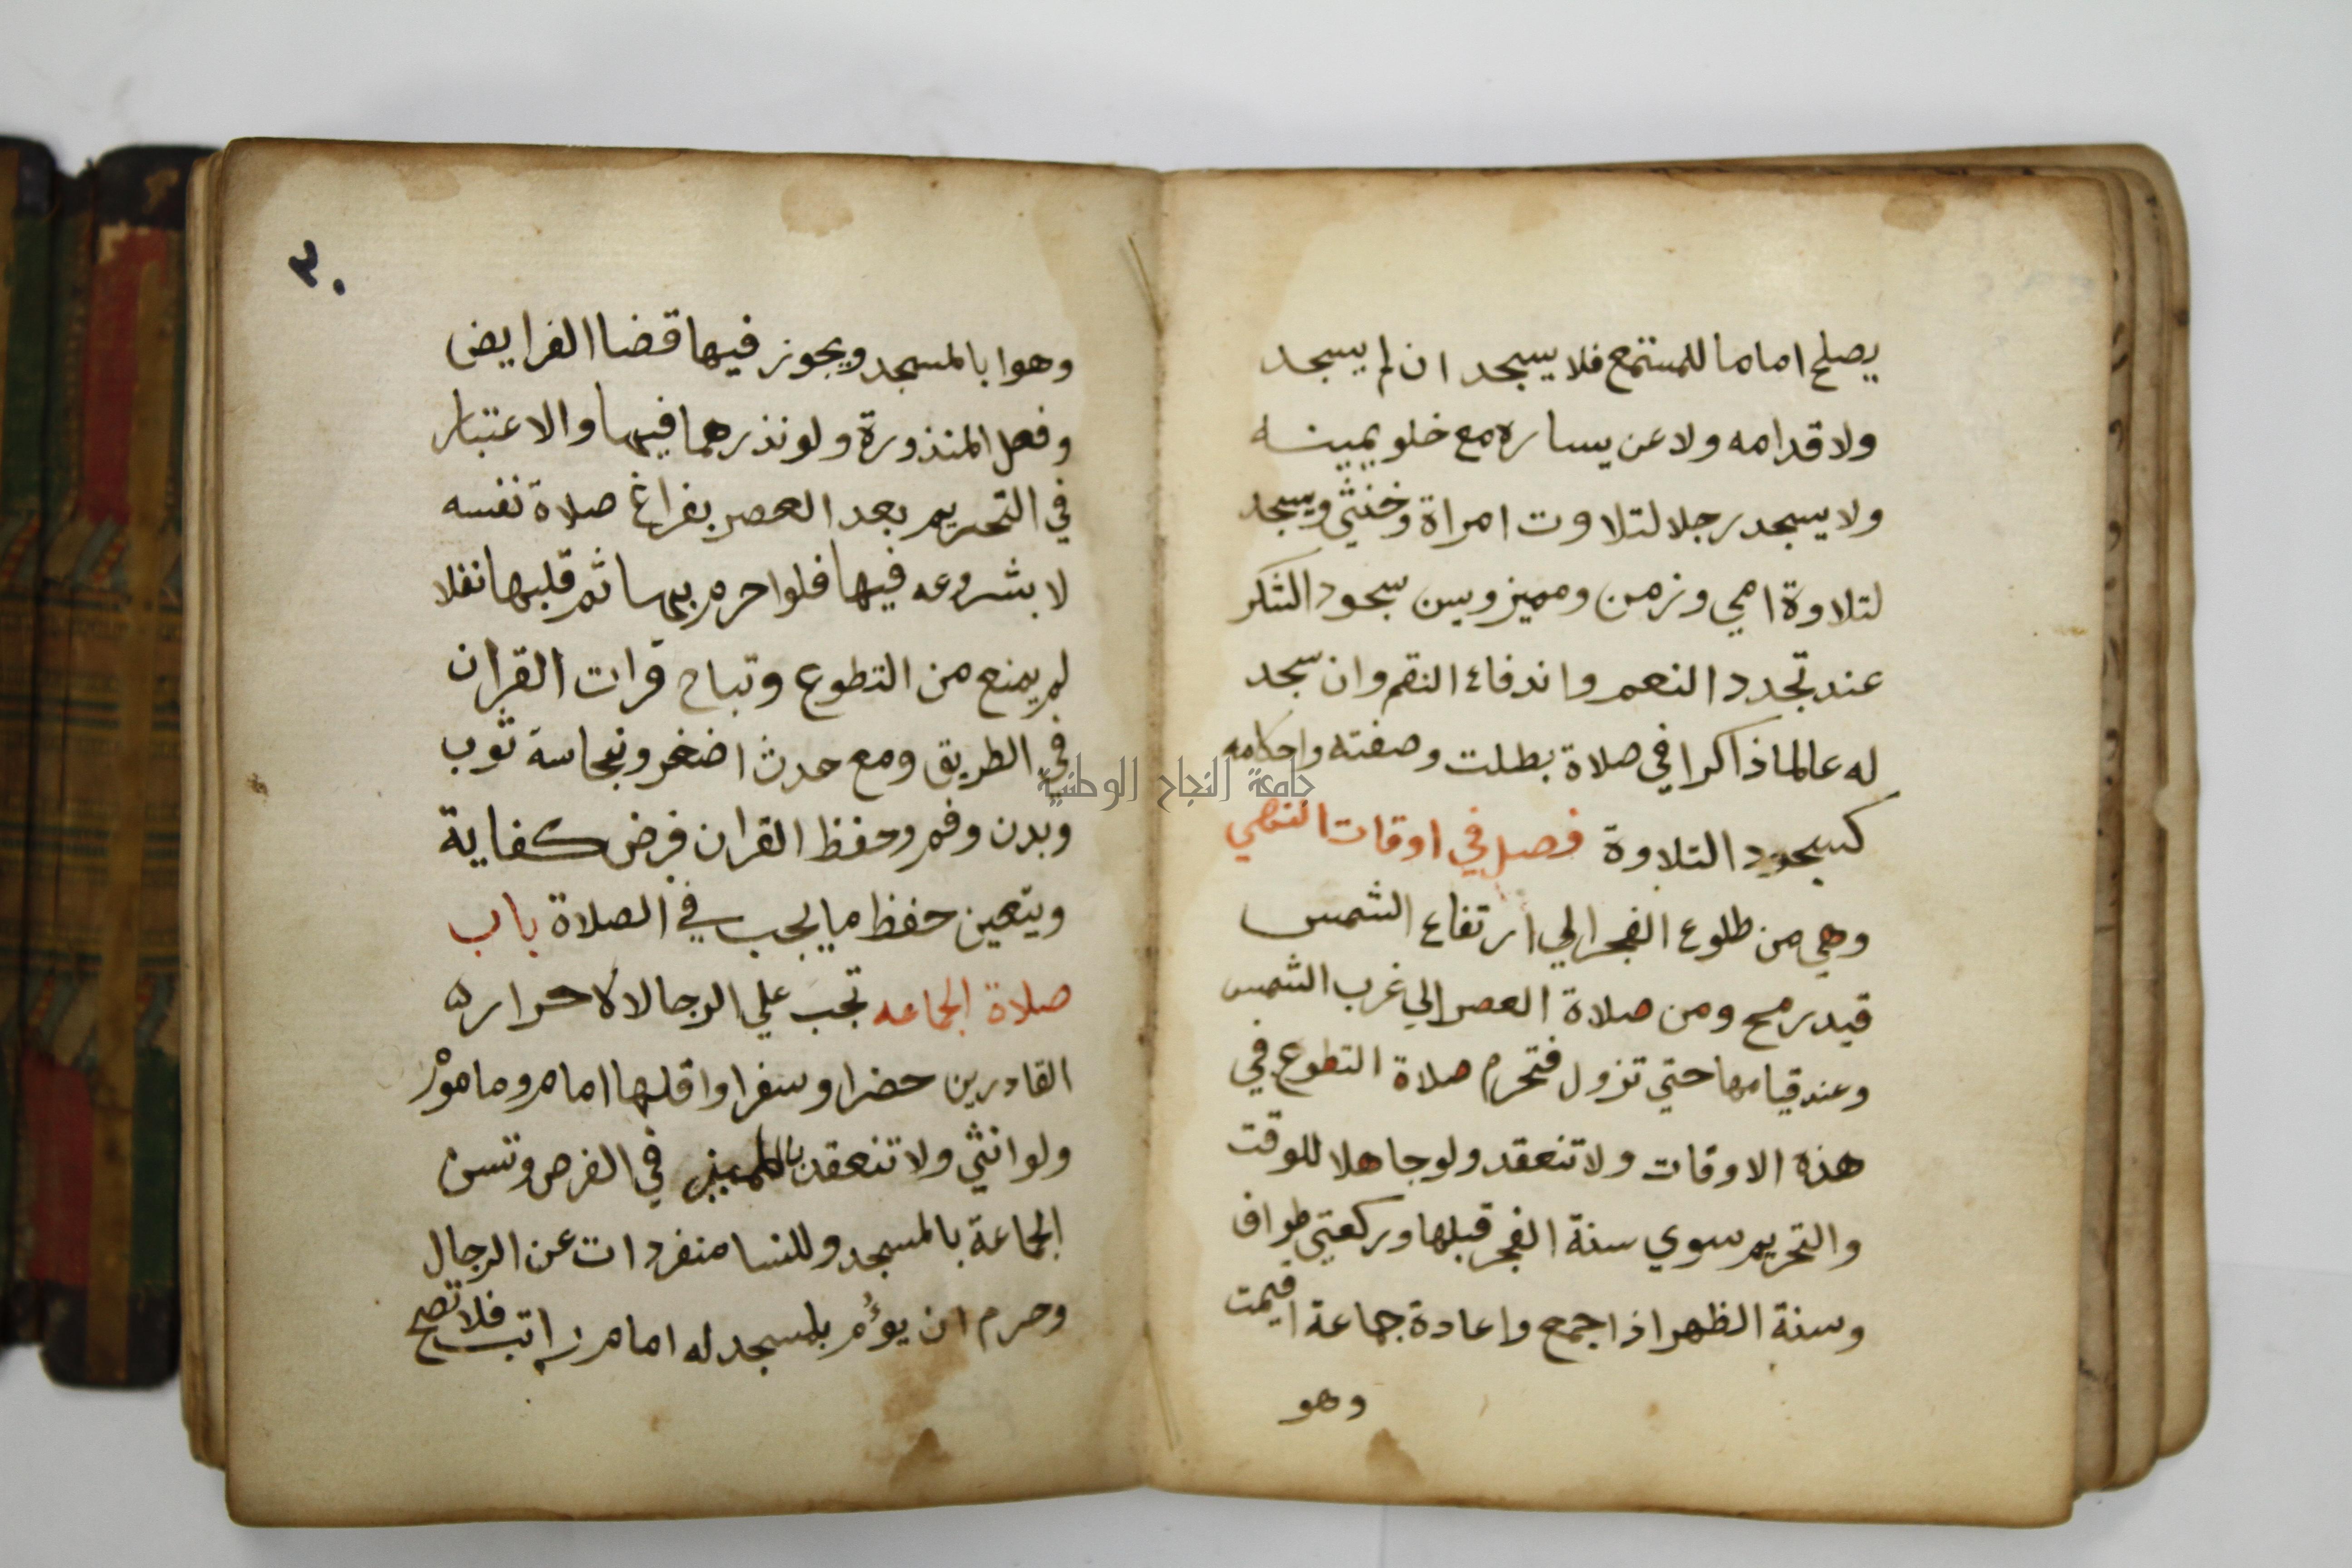 يصلح اماما للمستمع فلا يسجد ان لم يسجد
ولا قدامه ولا عن يساره مع خلو يمينه
ولا يسجد رجلا لتلاوت امراة وخنثي ويسجد
لتلاوة امي وزمن ومميز ويسن سجود الشكر
عند تجدد النعم واندفاع النقم وان سجد
له عالما ذاكرا في صلاة بطلت وصفته واحكامه
كسجود التلاوة فصل في اوقات النهي
وهي من طلوع الفجر الي ارتفاع الشمس
قيد رمح ومن صلاة العصر الي غرب الشمس
وعند قيامها حتي تزول فتحرم صلاة التطوع في
هذه الاوقات ولا تنعقد ولو جاهلا للوقت
والتحريم سوي سنة الفجر قبلها وركعتي طواف
وسنة الظهر اذا جمع واعادة جماعة اقيمت
وهو
٣٠
وهوا بالمسجد ويجوز فيها قضا الفرايض
وفعل المنذورة ولو نذرهما فيها والاعتبار
في التحريم بعد العصر بفراغ صلاة نفسه
لا بشروعه فيها فلوا حرم بها ثم قلبها نفلا
لم يمنع من التطوع وتباح قرات القران
في الطريق ومع حدث اضغر ونجاسة ثوب
وبدن وفم وحفظ القران فرض كفاية
ويتعين حفظ ما يجب في الصلاة باب
صلاة الجماعه تجب علي الرجال الاحرار
القادرين حضرا وسفرا واقلها امام وماموم
ولو انثي ولا تنعقد بالمميز في الفرض وتسن
الجماعة بالمسجد وللنسا منفردات عن الرجال
وحرم ان يؤم بلمسجد له امام راتب فلا تصح
جامعة النجاح الوطنية